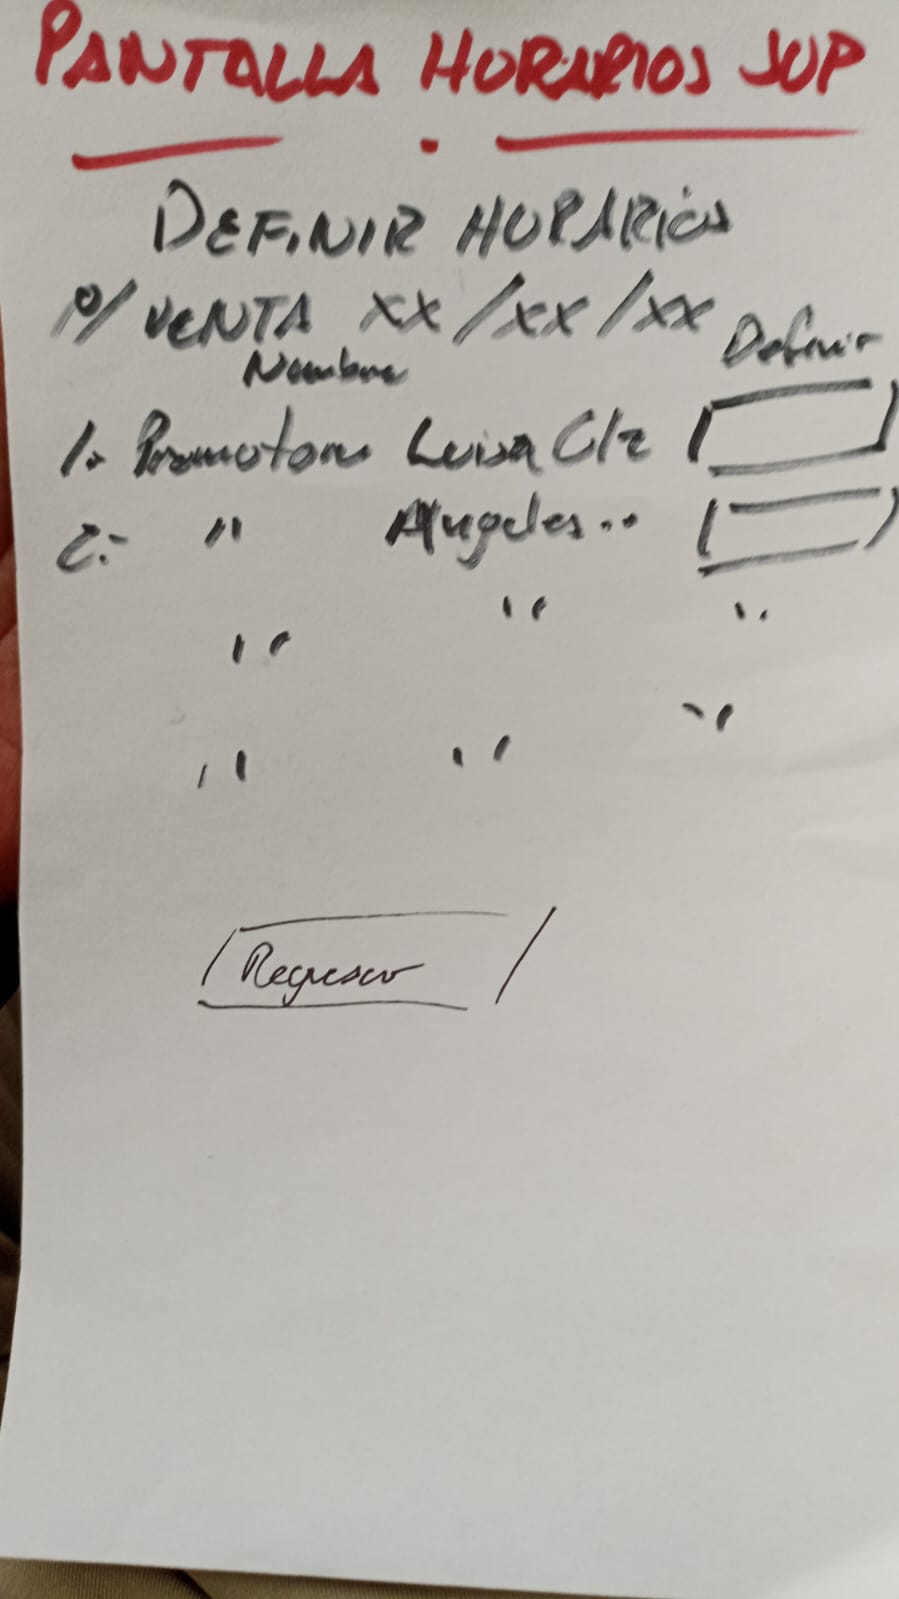 PANTALLA HORARIOS SUP
DEFINIR HORARIOS
P/ VENTA XX/XX/XX
Nombre Definir
1.- Promotora Luisa Clz
2.- " Angeles ..
" " "
" " "
Regresar